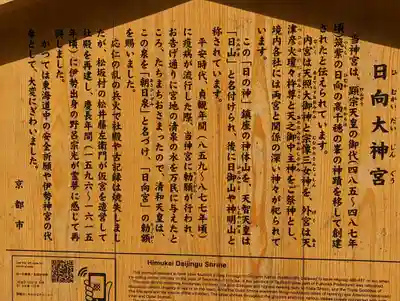 日向大神宮
当神宮は、顕宗天皇の御代(四八五~四八七年
頃)筑紫の日向の高千穂の峯の神蹟を移して創建
されたと伝えられています。
内宮は天照大御神と宗像三女神を、外宮は天
津彦火瓊々杵尊と天之御中主神をご祭神とし、
境内各社には両宮と関係の深い神々が祀られて
います。
この「日の神」鎮座の神体山を、天智天皇は
「日山」と名付けられ、後に日御山や神明山と
称されています。
平安時代、貞観年間(八五九~八七七年頃)
に疫病が流行した際、当神宮に勅願が行われ、
お告げ通りに宮地の清泉の水を万民に与えたと
ころ、たちまちおさまったので、清和天皇は、
この泉を「朝日泉」と名づけ、「日向宮」の勅額
を賜いました。
応仁の乱の兵火で社殿や古記録は焼失しまし
たが、松坂村の松井藤左衛門が仮宮を造営して
社殿を再建し、慶長年間(一五九六~一六一五
年頃)に伊勢出身の野呂宗光が霊夢に感じて再
興しました。
かつては東海道中の安全祈願や伊勢神宮の代
参として、大変にぎわいました。
京都市
Himukai Daijingu Shrine